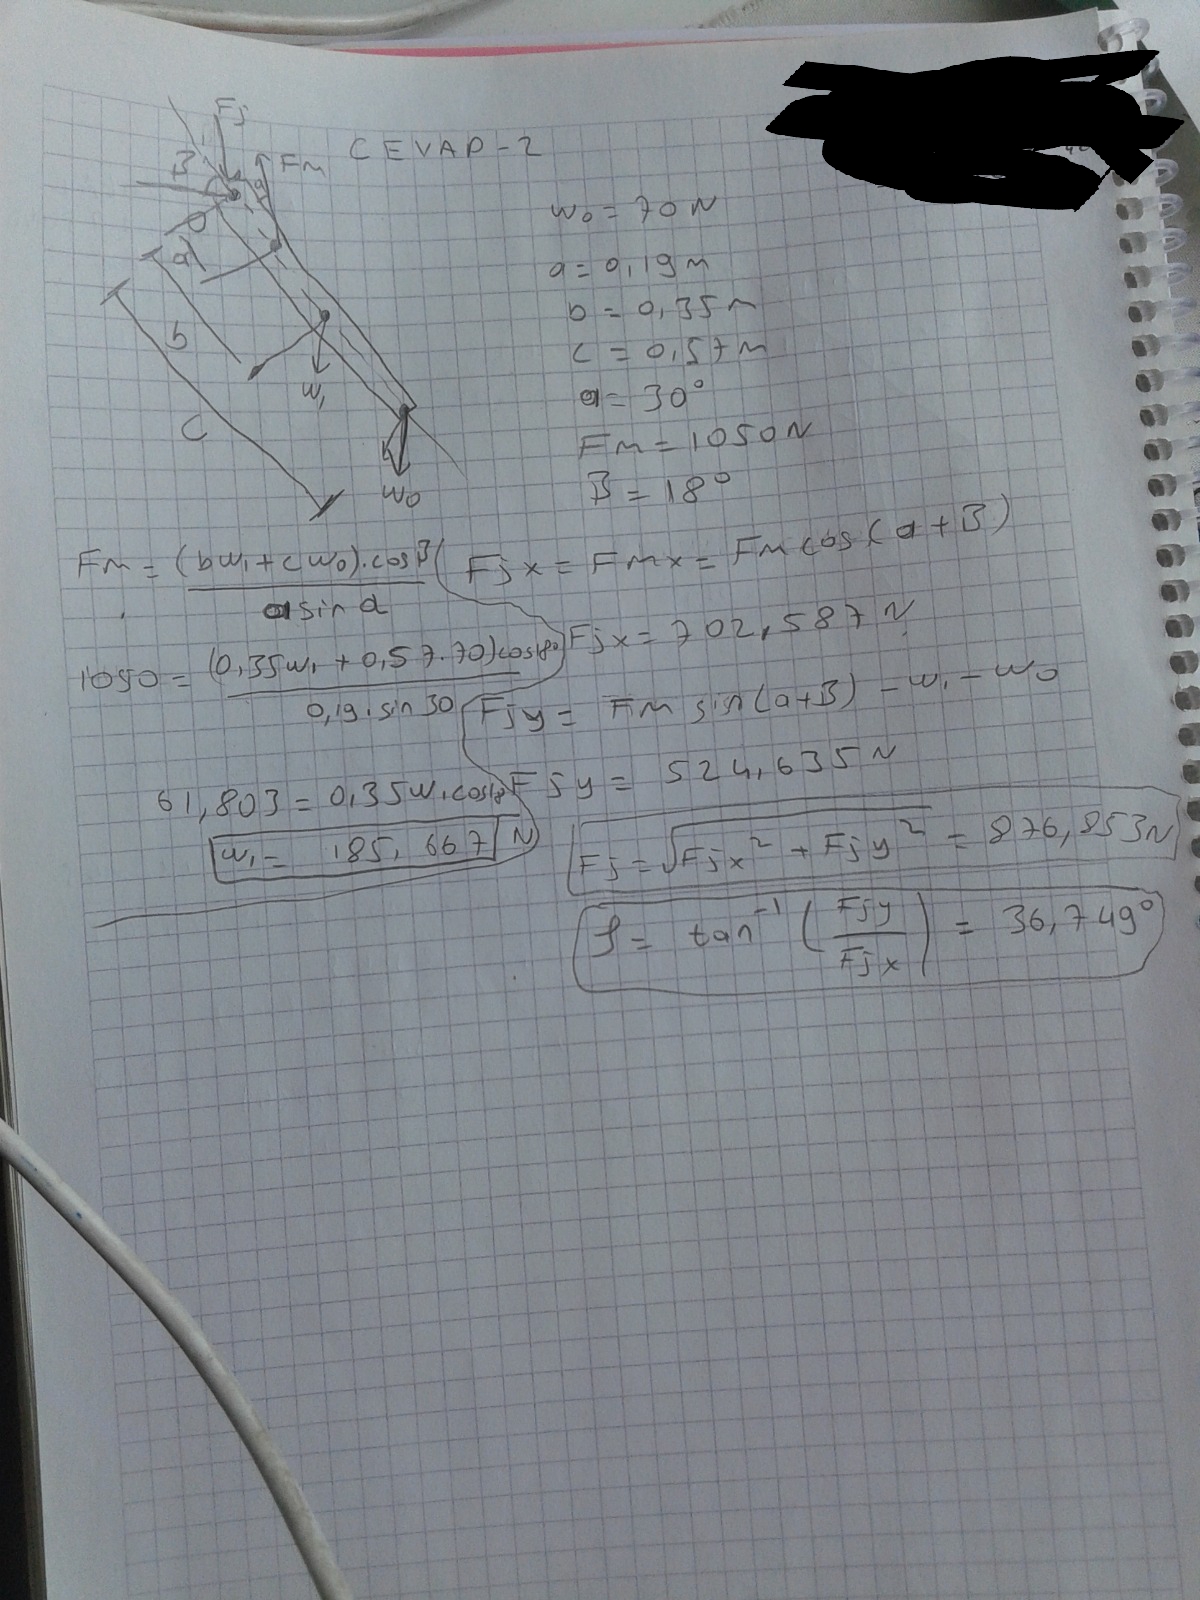 CEVAP-2
Fj
Fm
B
a
O
a
b
W₁
C
W₀
W₀ = 70 N
a = 0,19 m
b = 0,35 m
c = 0,57 m
α = 30°
Fm = 1050 N
B = 18°
Fm = (bw₁ + cw₀).cosB / a sin α
1050 = (0,35w₁ + 0,57.70)cos18° / 0,19.sin 30
61,803 = 0,35w₁.cos18
w₁ = 185,667 N
Fjx = Fmx = Fm cos(α + B)
Fjx = 702,587 N
Fjy = Fm sin(α+B) - w₁ - w₀
Fjy = 524,635 N
Fj = √Fjx² + Fjy² = 876,853 N
ρ = tan⁻¹ (Fjy / Fjx) = 36,749°